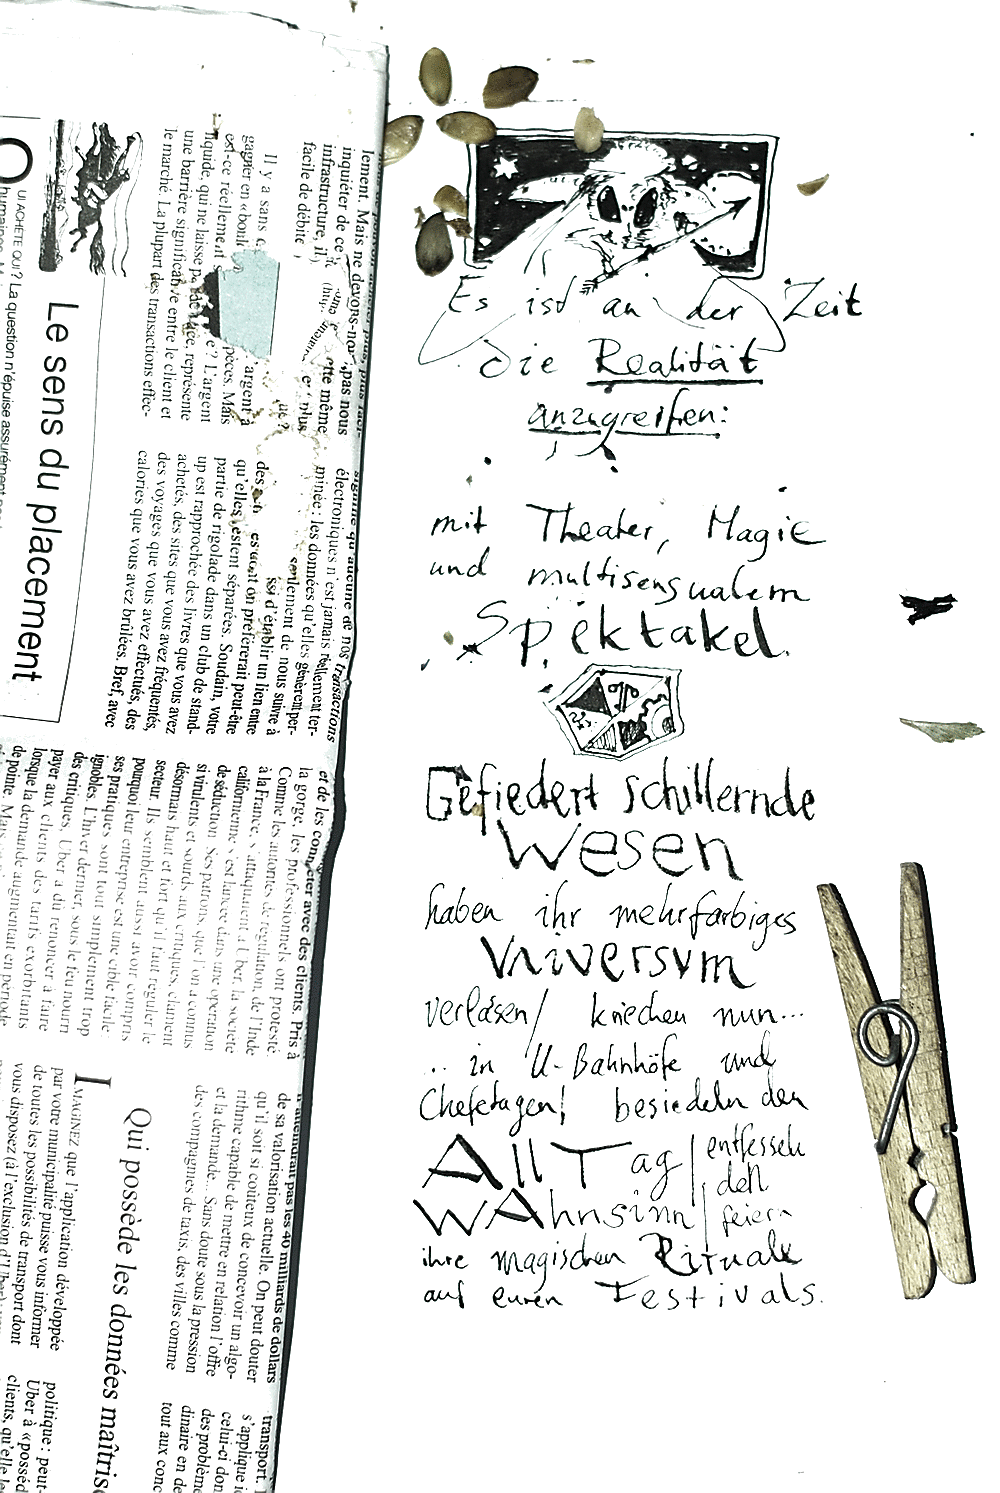 Es ist an der Zeit
die Realität
anzugreifen:
mit Theater, Magie
und multisensualem
Spektakel.
Gefiedert schillernde
Wesen
haben ihr mehrfarbiges
Universum
verlasen/ kriechen nun...
... in U-Bahnhöfe und
Chefetagen/ besiedeln den
AllTag/ entfesseln
den
WAhnsinn/ feiern
ihre magischen Rituale
auf euren Festivals.
lement. Mais ne devons-nous pas nous
inquiéter de ce
infrastructure, il
facile de débite
Il y a sans
gagner en «
est-ce réellement
liquide, qui ne laisse pas de trace, représente
une barrière significative entre le client et
le marché. La plupart des transactions effec-
électroniques n'est jamais réellement ter-
minée : les données qu'elles génèrent per-
seulement de nous suivre à
ssi d'établir un lien entre
des
qu'elles restent séparées. Soudain, votre
partie de rigolade dans un club de stand-
up est rapprochée des livres que vous avez
achetés, des sites que vous avez fréquentés,
des voyages que vous avez effectués, des
calories que vous avez brûlées. Bref, avec
Le sens du placement
QUI ACHÈTE QUI ? La question n'épuise assurément pas
et de les connecter avec des clients. Pris à
la gorge, les professionnels ont protesté.
Comme les autorités de régulation, de l'Inde
à la France, s'attaquaient à Uber, la société
californienne s'est lancée dans une opération
de séduction. Ses patrons, que l'on a connus
si virulents et sourds aux critiques, clament
désormais haut et fort qu'il faut réguler le
secteur. Ils semblent aussi avoir compris
pourquoi leur entreprise est une cible facile :
ses pratiques sont tout simplement trop
ignobles. L'hiver dernier, sous le feu nourri
des critiques, Uber a dû renoncer à faire
payer aux clients des tarifs exorbitants
lorsque la demande augmentait en période
de pointe. Mais
atteindrait pas les 40 milliards de dollars
de sa valorisation actuelle. On peut douter
qu'il soit si coûteux de concevoir un algo-
rithme capable de mettre en relation l'offre
et la demande... Sans doute sous la pression
des compagnies de taxis, des villes comme
Qui possède les données maîtrise
IMAGINEZ que l'application développée
par votre municipalité puisse vous informer
de toutes les possibilités de transport dont
vous disposez (à l'exclusion d'Uber
transport.
s'applique
celui-ci don
des problèm
dinaire en de
tout aux conc
politique : peut-
Uber à « posséd
clients, qu'elle